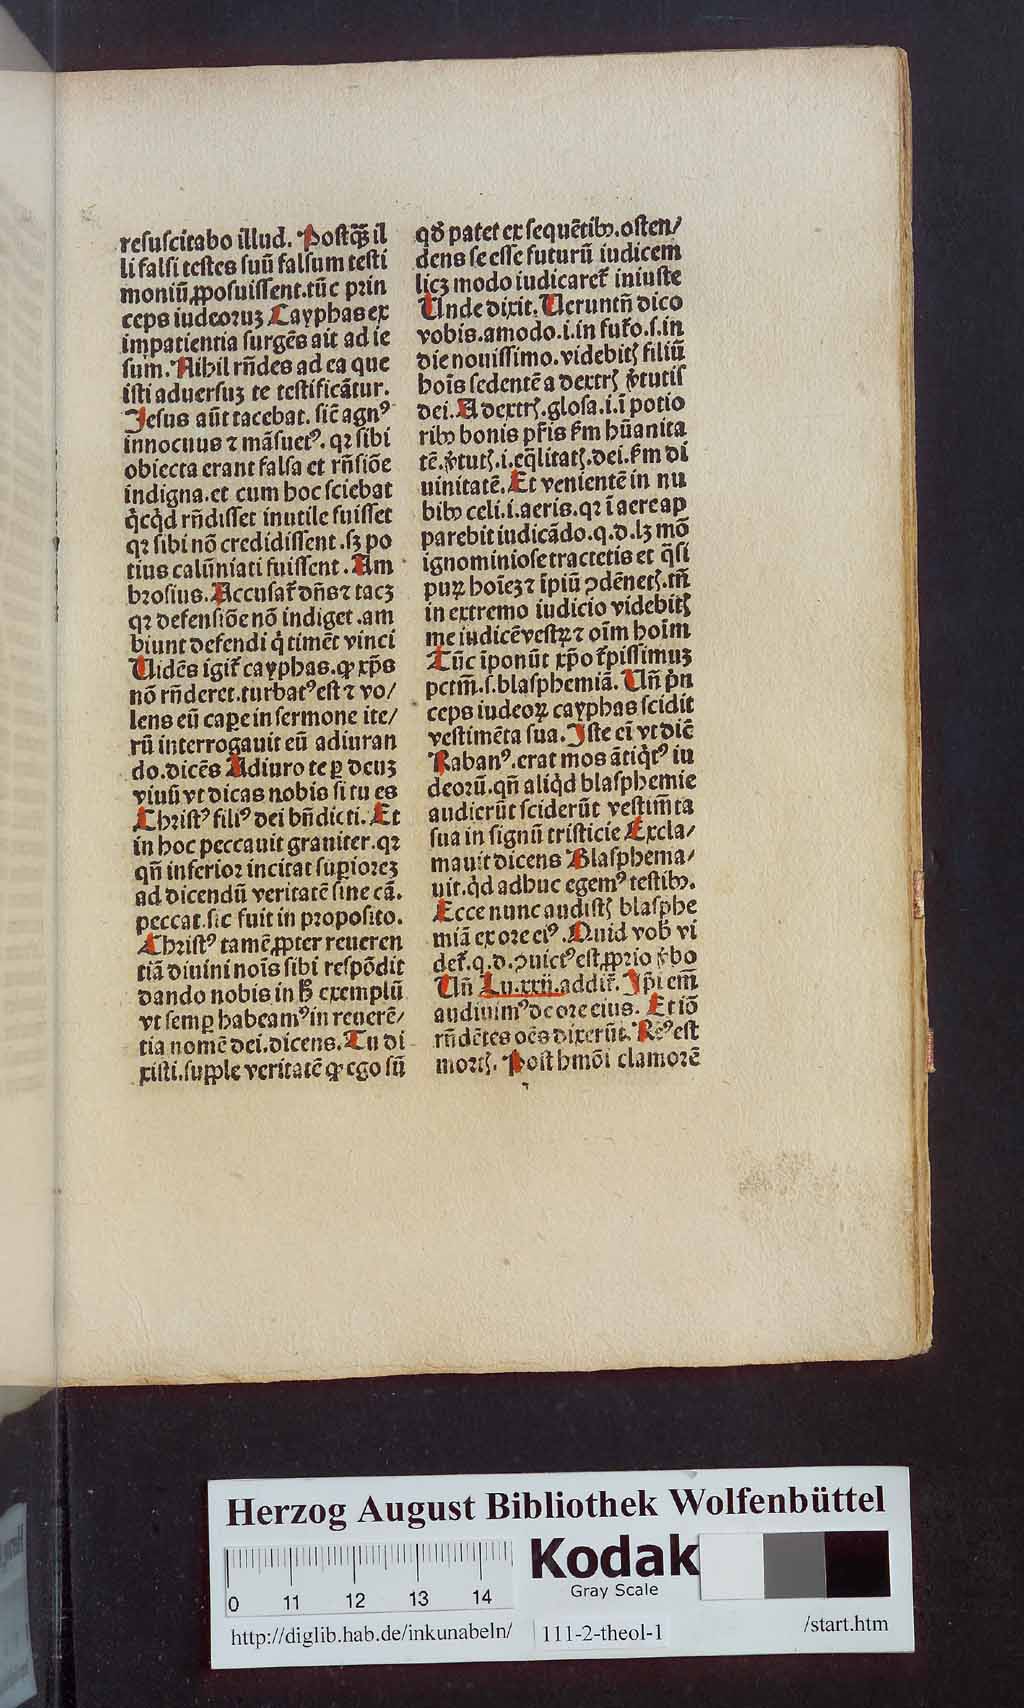 resuscitabo illud. Postꝙ̃ il
li falsi testes suū falsum testi
moniū ꝓposuissent. tūc prin
ceps iudeoruꝫ Cayphas ex
impatientia surgēs ait ad ie
sum. Nihil rñdes ad ea que
isti aduersuꝫ te testificātur.
Jesus aūt tacebat. sič agnꝰ
innocuus ⁊ māsuetꝰ. qꝛ sibi
obiecta erant falsa et rñsiōe
indigna. et cum hoc sciebat
q̇cq̇d rñdisset inutile fuisset
qꝛ sibi nō credidissent. sꝫ po
tius calūniati fuissent. Am
brosius. Accusaꝉ dñs ⁊ tacꝫ
qꝛ defensiōe nō indiget. am
biunt defendi q̇ timēt vinci
Uidēs igiꝉ cayphas. ꝙ xp̄s
nō rñderet. turbatꝰ est ⁊ vo/
lens eū caꝑe in sermone ite/
rū interrogauit eū adiuran
do. dicēs Adiuro te ꝑ deuꝫ
viuū vt dicas nobis si tu es
Christꝰ filiꝰ dei bñdicti. Et
in hoc peccauit grauiter. qꝛ
qñ inferior incitat suꝑioreꝫ
ad dicendū veritatē sine cā.
peccat. sic fuit in proposito.
Christꝰ tamē ꝓpter reueren
tiā diuini nois̄ sibi respōdit
dando nobis in ħ exemplū
vt semꝑ habeamꝰ in reuerē/
tia nomē dei. dicens. Tu di
xisti. supple veritatē ꝙ ego sū
qđ patet ex sequētibꝰ. osten/
dens se esse futurū iudicem
licꝫ modo iudicareꝉ iniuste
Unde dixit. Ueruntñ dico
vobis. amodo. i. in fuꝉo. s. in
die nouissimo. videbitꝭ filiū
hois̄ sedentē a dextrꝭ v̓tutis
dei. A dextrꝭ. glosa. i. ī potio
ribꝰ bonis pr̄is ẜm hūanita
tē. v̓tutꝭ. i. eq̄litatꝭ. dei. ẜm di
uinitatē. Et venientē in nu
bibꝰ celi. i. aeris. qꝛ ī aere ap
parebit iudicādo. q. d. lꝫ mō
ignominiose tractetis et q̄si
puꝝ hoīeꝫ ⁊ īpiū ꝯdēnetꝭ. tñ
in extremo iudicio videbitꝭ
me iudicē vestꝝ ⁊ oīm hoīm
Tūc īponūt xp̄o ꝉpissimuꝫ
pctm̄. s. blasphemiā. Uñ p̓n
ceps iudeoꝝ cayphas scidit
vestimēta sua. Iste ei̅ vt dič
Rabanꝰ. erat mos ātiq̇tꝰ iu
deorū. qñ aliq̇d blasphemie
audierūt sciderūt vestim̄ta
sua in signū tristicie Excla/
mauit dicens Blasphema/
uit. q̇d adhuc egemꝰ testibꝰ.
Ecce nunc audistꝭ blasphe
miā ex ore eiꝰ. Quid vob̓ vi
deꝉ. q. d. ꝯuictꝰ est ꝓprio v̓bo
Uñ Lu. xxij. addiꝉ. Ip̄i em̄
audiuimꝰ de ore eius. Et iō
rñdētes oēs dixerūt. Reꝰ est
mortꝭ. Post hmōi clamorē
Herzog August Bibliothek Wolfenbüttel
0 11 12 13 14
Kodak
Gray Scale
http://diglib.hab.de/inkunabeln/ 111-2-theol-1 /start.htm